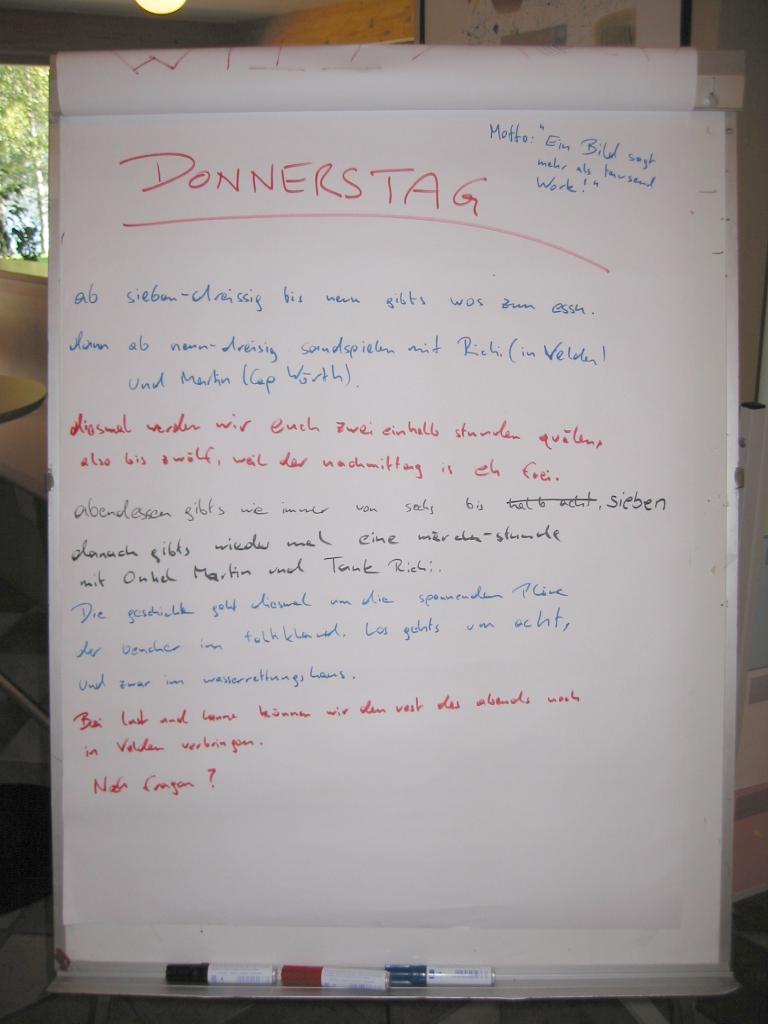 Motto: "Ein Bild sagt
mehr als tausend
Worte!"
DONNERSTAG
ab sieben-dreissig bis neun gibts was zum essn.
dann ab neun-dreisig sandspielen mit Richi (in Velden)
und Martin (Cap Wörth).
diesmal werden wir euch zwei einhalb stunden quälen,
also bis zwölf, weil der nachmittag is eh frei.
abendessen gibts wie immer von sechs bis halb acht, sieben
danach gibts wieder mal eine märchen-stunde
mit Onkel Martin und Tante Richi.
Die geschichte geht diesmal um die spannenden Pläne
der im . Los gehts um acht,
und zwar im wasserrettungshaus.
Bei lust und laune können wir den rest des abends noch
in Velden verbringen.
Noch Fragen?